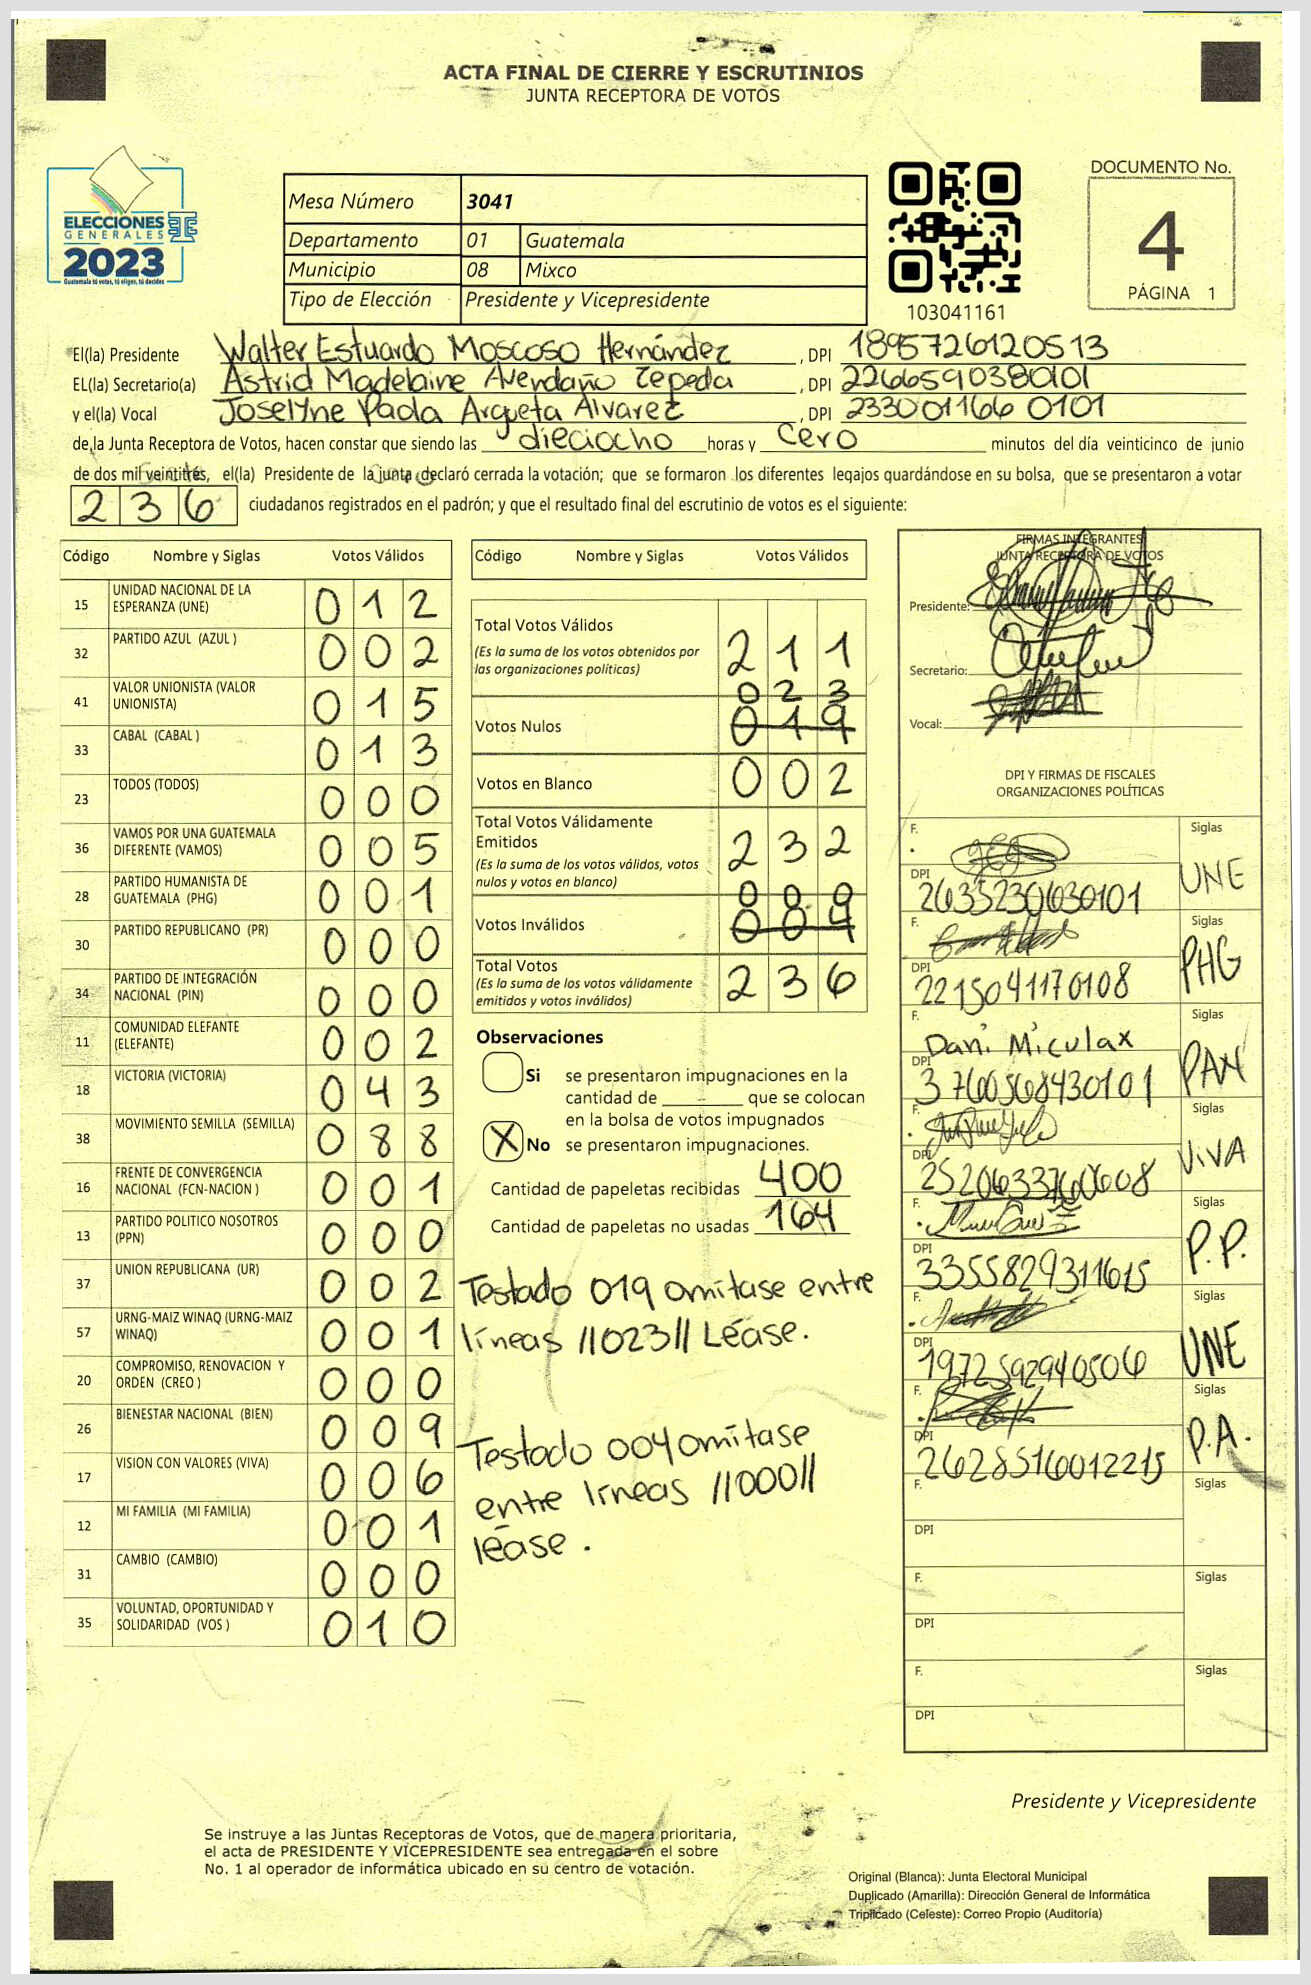 ACTA FINAL DE CIERRE Y ESCRUTINIOS
JUNTA RECEPTORA DE VOTOS
ELECCIONES
GENERALES
2023
Guatemala tú votas, tú eliges, tú decides
Mesa Número 3041
Departamento 01 Guatemala
Municipio 08 Mixco
Tipo de Elección Presidente y Vicepresidente
103041161
DOCUMENTO No.
4
PÁGINA 1
El(la) Presidente Walter Estuardo Moscoso Hernández, DPI 1895726120513
EL(la) Secretario(a) Astrid Madelaine Avendaño Zepeda, DPI 2266590380101
y el(la) Vocal Joselyne Paola Argueta Alvarez, DPI 2330011660101
de la Junta Receptora de Votos, hacen constar que siendo las dieciocho horas y cero minutos del día veinticinco de junio
de dos mil veintitrés, el(la) Presidente de la Junta, declaró cerrada la votación; que se formaron los diferentes legajos guardándose en su bolsa, que se presentaron a votar
236 ciudadanos registrados en el padrón; y que el resultado final del escrutinio de votos es el siguiente:
Código Nombre y Siglas Votos Válidos
15 UNIDAD NACIONAL DE LA ESPERANZA (UNE) 012
32 PARTIDO AZUL (AZUL ) 002
41 VALOR UNIONISTA (VALOR UNIONISTA) 015
33 CABAL (CABAL ) 013
23 TODOS (TODOS) 000
36 VAMOS POR UNA GUATEMALA DIFERENTE (VAMOS) 005
28 PARTIDO HUMANISTA DE GUATEMALA (PHG) 001
30 PARTIDO REPUBLICANO (PR) 000
34 PARTIDO DE INTEGRACIÓN NACIONAL (PIN) 000
11 COMUNIDAD ELEFANTE (ELEFANTE) 002
18 VICTORIA (VICTORIA) 043
38 MOVIMIENTO SEMILLA (SEMILLA) 088
16 FRENTE DE CONVERGENCIA NACIONAL (FCN-NACION ) 001
13 PARTIDO POLITICO NOSOTROS (PPN) 000
37 UNION REPUBLICANA (UR) 002
57 URNG-MAIZ WINAQ (URNG-MAIZ WINAQ) 001
20 COMPROMISO, RENOVACION Y ORDEN (CREO ) 000
26 BIENESTAR NACIONAL (BIEN) 009
17 VISION CON VALORES (VIVA) 006
12 MI FAMILIA (MI FAMILIA) 001
31 CAMBIO (CAMBIO) 000
35 VOLUNTAD, OPORTUNIDAD Y SOLIDARIDAD (VOS ) 010
Código Nombre y Siglas Votos Válidos
Total Votos Válidos 211
(Es la suma de los votos obtenidos por
las organizaciones políticas)
023
Votos Nulos 019
Votos en Blanco 002
Total Votos Válidamente
Emitidos 232
(Es la suma de los votos válidos, votos
nulos y votos en blanco)
000
Votos Inválidos 004
Total Votos 236
(Es la suma de los votos válidamente
emitidos y votos inválidos)
Observaciones
Si se presentaron impugnaciones en la
cantidad de ________ que se colocan
en la bolsa de votos impugnados
X No se presentaron impugnaciones.
Cantidad de papeletas recibidas 400
Cantidad de papeletas no usadas 164
Testado 019 omitase entre
líneas //023// Léase.
Testado 004 omitase
entre líneas //000//
léase.
FIRMAS INTEGRANTES
JUNTA RECEPTORA DE VOTOS
Presidente:
Secretario:
Vocal:
DPI Y FIRMAS DE FISCALES
ORGANIZACIONES POLÍTICAS
F. Siglas
DPI 2635230630101 UNE
F. Siglas
DPI 2215041170108 PHG
F. Dani Miculax Siglas
DPI 3760568430101 PAN
F. Siglas
DPI 2520633760608 VIVA
F. Siglas
DPI 3355829311615 P.P.
F. Siglas
DPI 1972592940506 UNE
F. Siglas
DPI 2628516012215 P.A.
F. Siglas
DPI
F. Siglas
DPI
F. Siglas
DPI
Presidente y Vicepresidente
Se instruye a las Juntas Receptoras de Votos, que de manera prioritaria,
el acta de PRESIDENTE Y VICEPRESIDENTE sea entregada en el sobre
No. 1 al operador de informática ubicado en su centro de votación.
Original (Blanca): Junta Electoral Municipal
Duplicado (Amarilla): Dirección General de Informática
Triplicado (Celeste): Correo Propio (Auditoría)